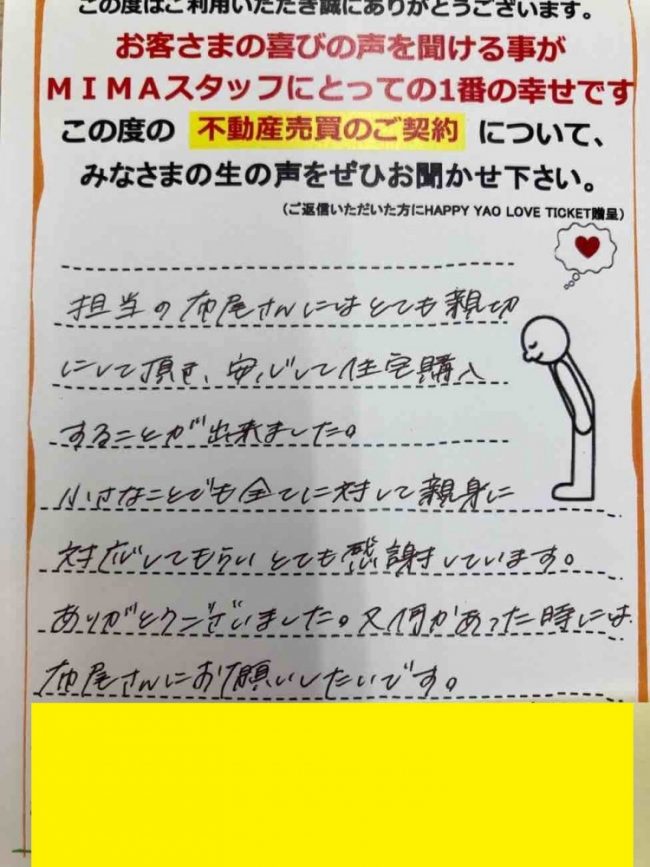 この度はご利用いただき誠にありがとうございます。
お客さまの喜びの声を聞ける事が
MIMAスタッフにとっての1番の幸せです
この度の 不動産売買のご契約 について、
みなさまの生の声をぜひお聞かせ下さい。
(ご返信いただいた方にHAPPY YAO LOVE TICKET贈呈)
担当の布尾さんにはとても親切
にして頂き、安心して住宅購入
することが出来ました。
小さなことでも全てに対して親身に
対応してもらいとても感謝しています。
ありがとうございました。又何かあった時には
布尾さんにお願いしたいです。